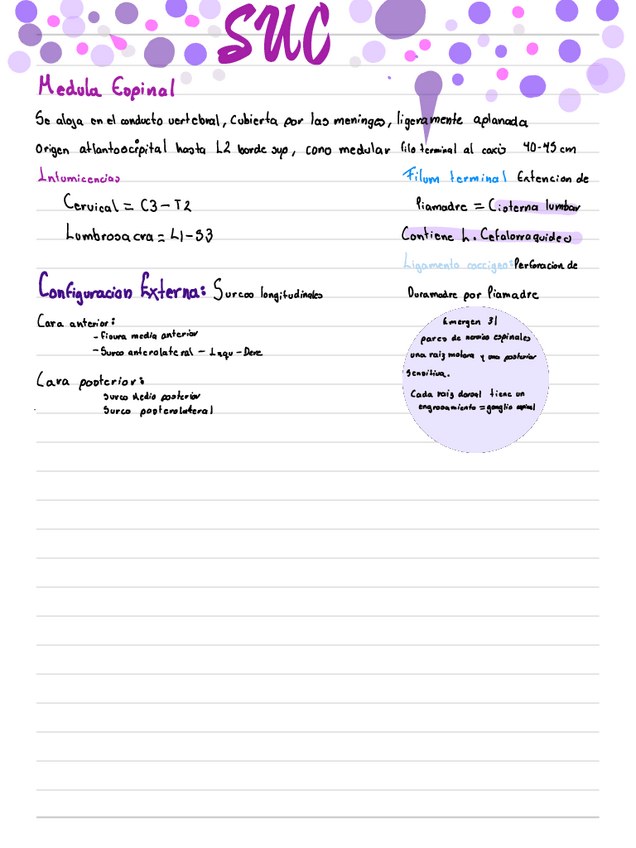 SUC
Medula Espinal
Se aloja en el conducto vertebral, Cubierta por las meninges, ligeramente aplanada
Origen atlantoocipital hasta L2 borde sup, cono medular filo terminal al coxis 40-45 cm
Intumicencias
Cervical = C3-T2
Lumbrosacra = L1-S3
Filum terminal Extencion de
Piamadre = Cisterna lumbar
Contiene L. Cefalorraquideo
Ligamento coccigeo: Perforacion de
Duramadre por Piamadre
Configuracion Externa: Surcos longitudinales
Cara anterior:
- Fisura media anterior
- Surco anterolateral - Izqu - Dere
Cara posterior:
Surco Medio posterior
Surco posterolateral
Emergen 31
pares de nervios espinales
una raiz motora y una posterior
Sensitiva.
Cada raiz dorsal tiene un
engrosamiento = ganglio espinal